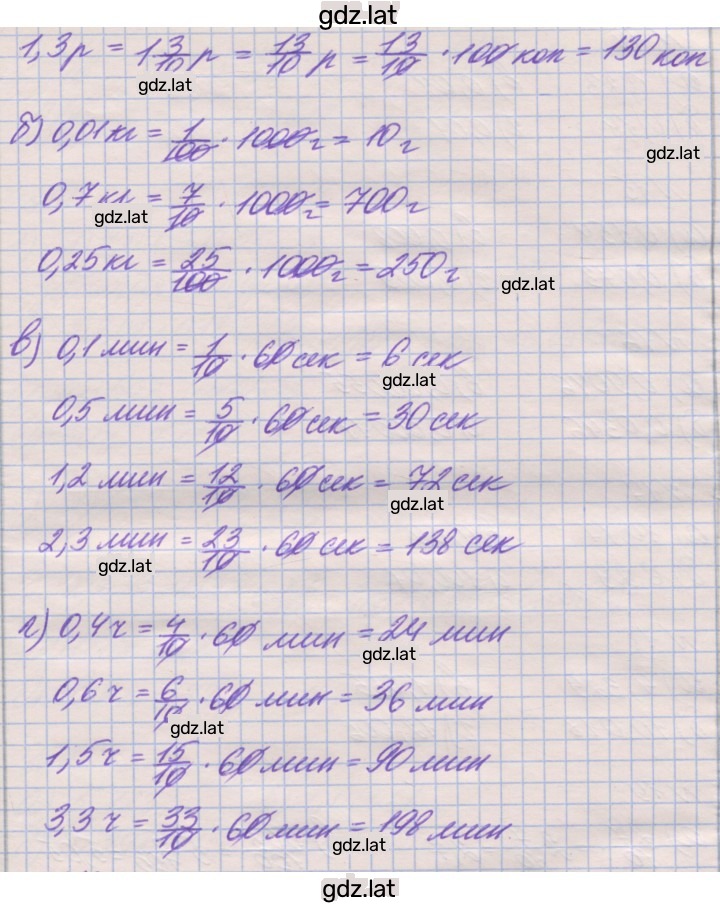 gdz.lat
1,3 р = 1 3/10 р = 13/10 р = 13/10 · 100 коп = 130 коп
gdz.lat
б) 0,01 кг = 1/100 · 1000 г = 10 г
gdz.lat
0,7 кг = 7/10 · 1000 г = 700 г
gdz.lat
0,25 кг = 25/100 · 1000 г = 250 г
gdz.lat
в) 0,1 мин = 1/10 · 60 сек = 6 сек
gdz.lat
0,5 мин = 5/10 · 60 сек = 30 сек
1,2 мин = 12/10 · 60 сек = 72 сек
gdz.lat
2,3 мин = 23/10 · 60 сек = 138 сек
gdz.lat
г) 0,4 ч = 4/10 · 60 мин = 24 мин
gdz.lat
0,6 ч = 6/10 · 60 мин = 36 мин
gdz.lat
1,5 ч = 15/10 · 60 мин = 90 мин
3,3 ч = 33/10 · 60 мин = 198 мин
gdz.lat
gdz.lat